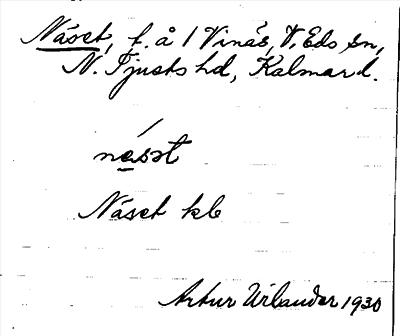 Näset, t. å 1 Vinäs, V. Eds sn,
N. Tjusts hd, Kalmar l.
näsət
Näset kb
Artur Urlander 1930